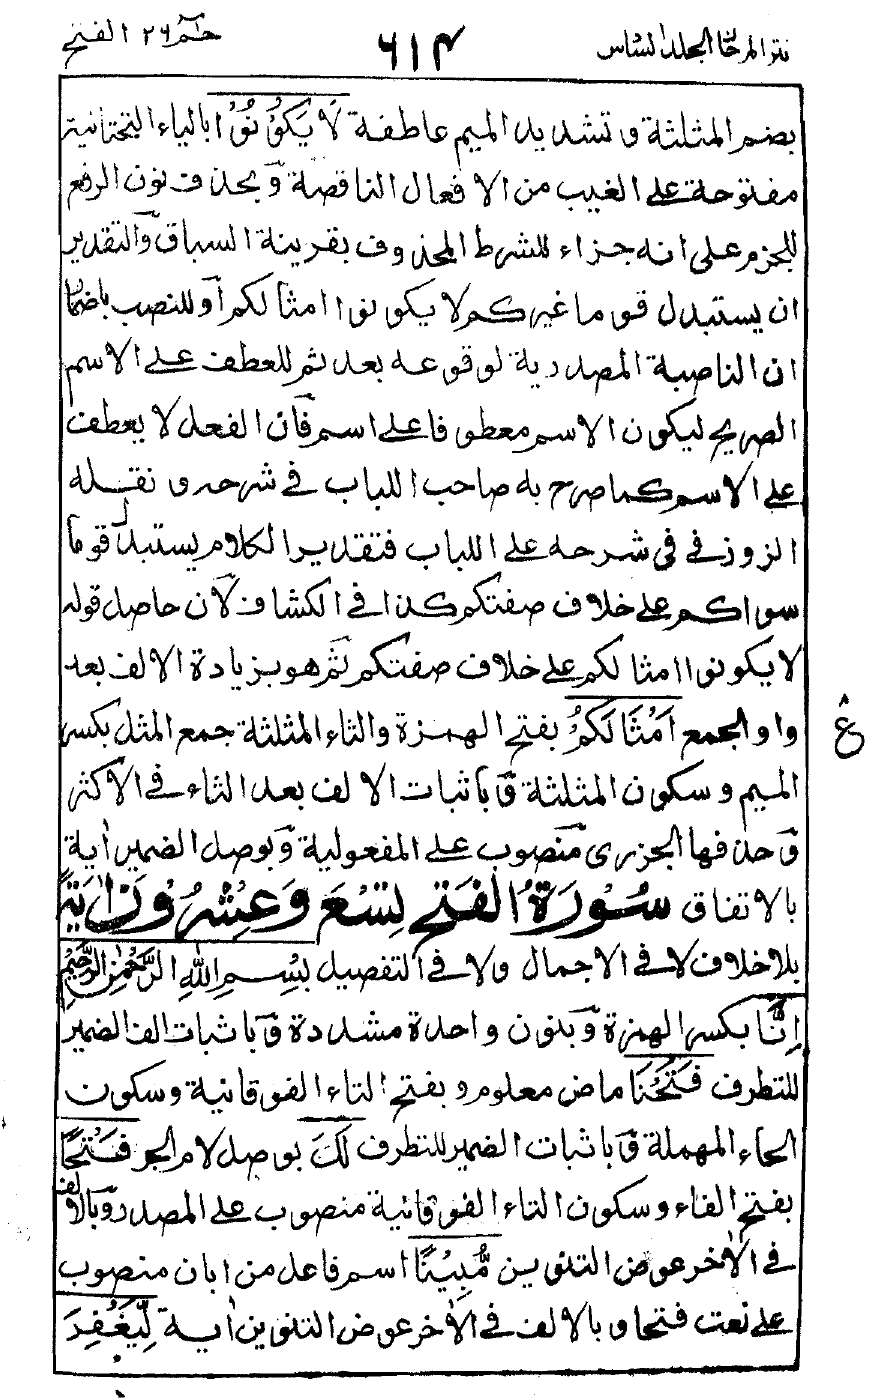 نثر المرجان الجلد السادس ٦١٤ حٰم ٢٦ الفتح
بضم المثلثة وتشديد الميم عاطفة لَا يَكُوْنُوْا بالياء التحتانية
مفتوحة على الغيب من الافعال الناقصة وبحذف نون الرفع
للجزم على انه جزاء للشرط المحذوف بقرينة السباق والتقدير
ان يستبدل قوما غيركم لا يكونوا امثالكم او للنصب باضمار
ان الناصبة المصدرية لوقوعه بعد ثم للعطف على الاسم
الصريح ليكون الاسم معطوفا على اسم فان الفعل لا يعطف
على الاسم كما صرح به صاحب اللباب في شرحه ونقله
الزوزني في شرحه على اللباب فتقدير الكلام يستبدل قوما
سواكم على خلاف صفتكم كذا في الكشاف لان حاصل قوله
لا يكونوا امثالكم على خلاف صفتكم ثم هو بزيادة الالف بعد
واو الجمع اَمْثَالَكُمْ بفتح الهمزة والثاء المثلثة جمع المثل بكسر
ع
الميم وسكون المثلثة وباثبات الالف بعد الثاء في الاكثر
وحذفها الجزرى منصوب على المفعولية وبوصل الضمير اٰية
بالاتفاق سُوْرَةُ الْفَتْحِ تِسْعَ وَعِشْرُوْنَ اٰيَةً
بلا خلاف لا في الاجمال ولا في التفصيل بِسْمِ اللهِ الرَّحْمٰنِ الرَّحِيْمِ
اِنَّا بكسر الهمزة وبنون واحدة مشددة وباثبات الف الضمير
للتطرف فَتَحْنَا ماض معلوم وبفتح التاء الفوقانية وسكون
الحاء المهملة وباثبات الضمير للتطرف لَكَ بوصل لام الجر فَتْحًا
بفتح الفاء وسكون التاء الفوقانية منصوب على المصدر وبالالف
في الاٰخر عوض التنوين مُّبِيْنًا اسم فاعل من ابان منصوب
على نعت فتحا وبالالف في الاٰخر عوض التنوين اٰية لِّيَغْفِرَ